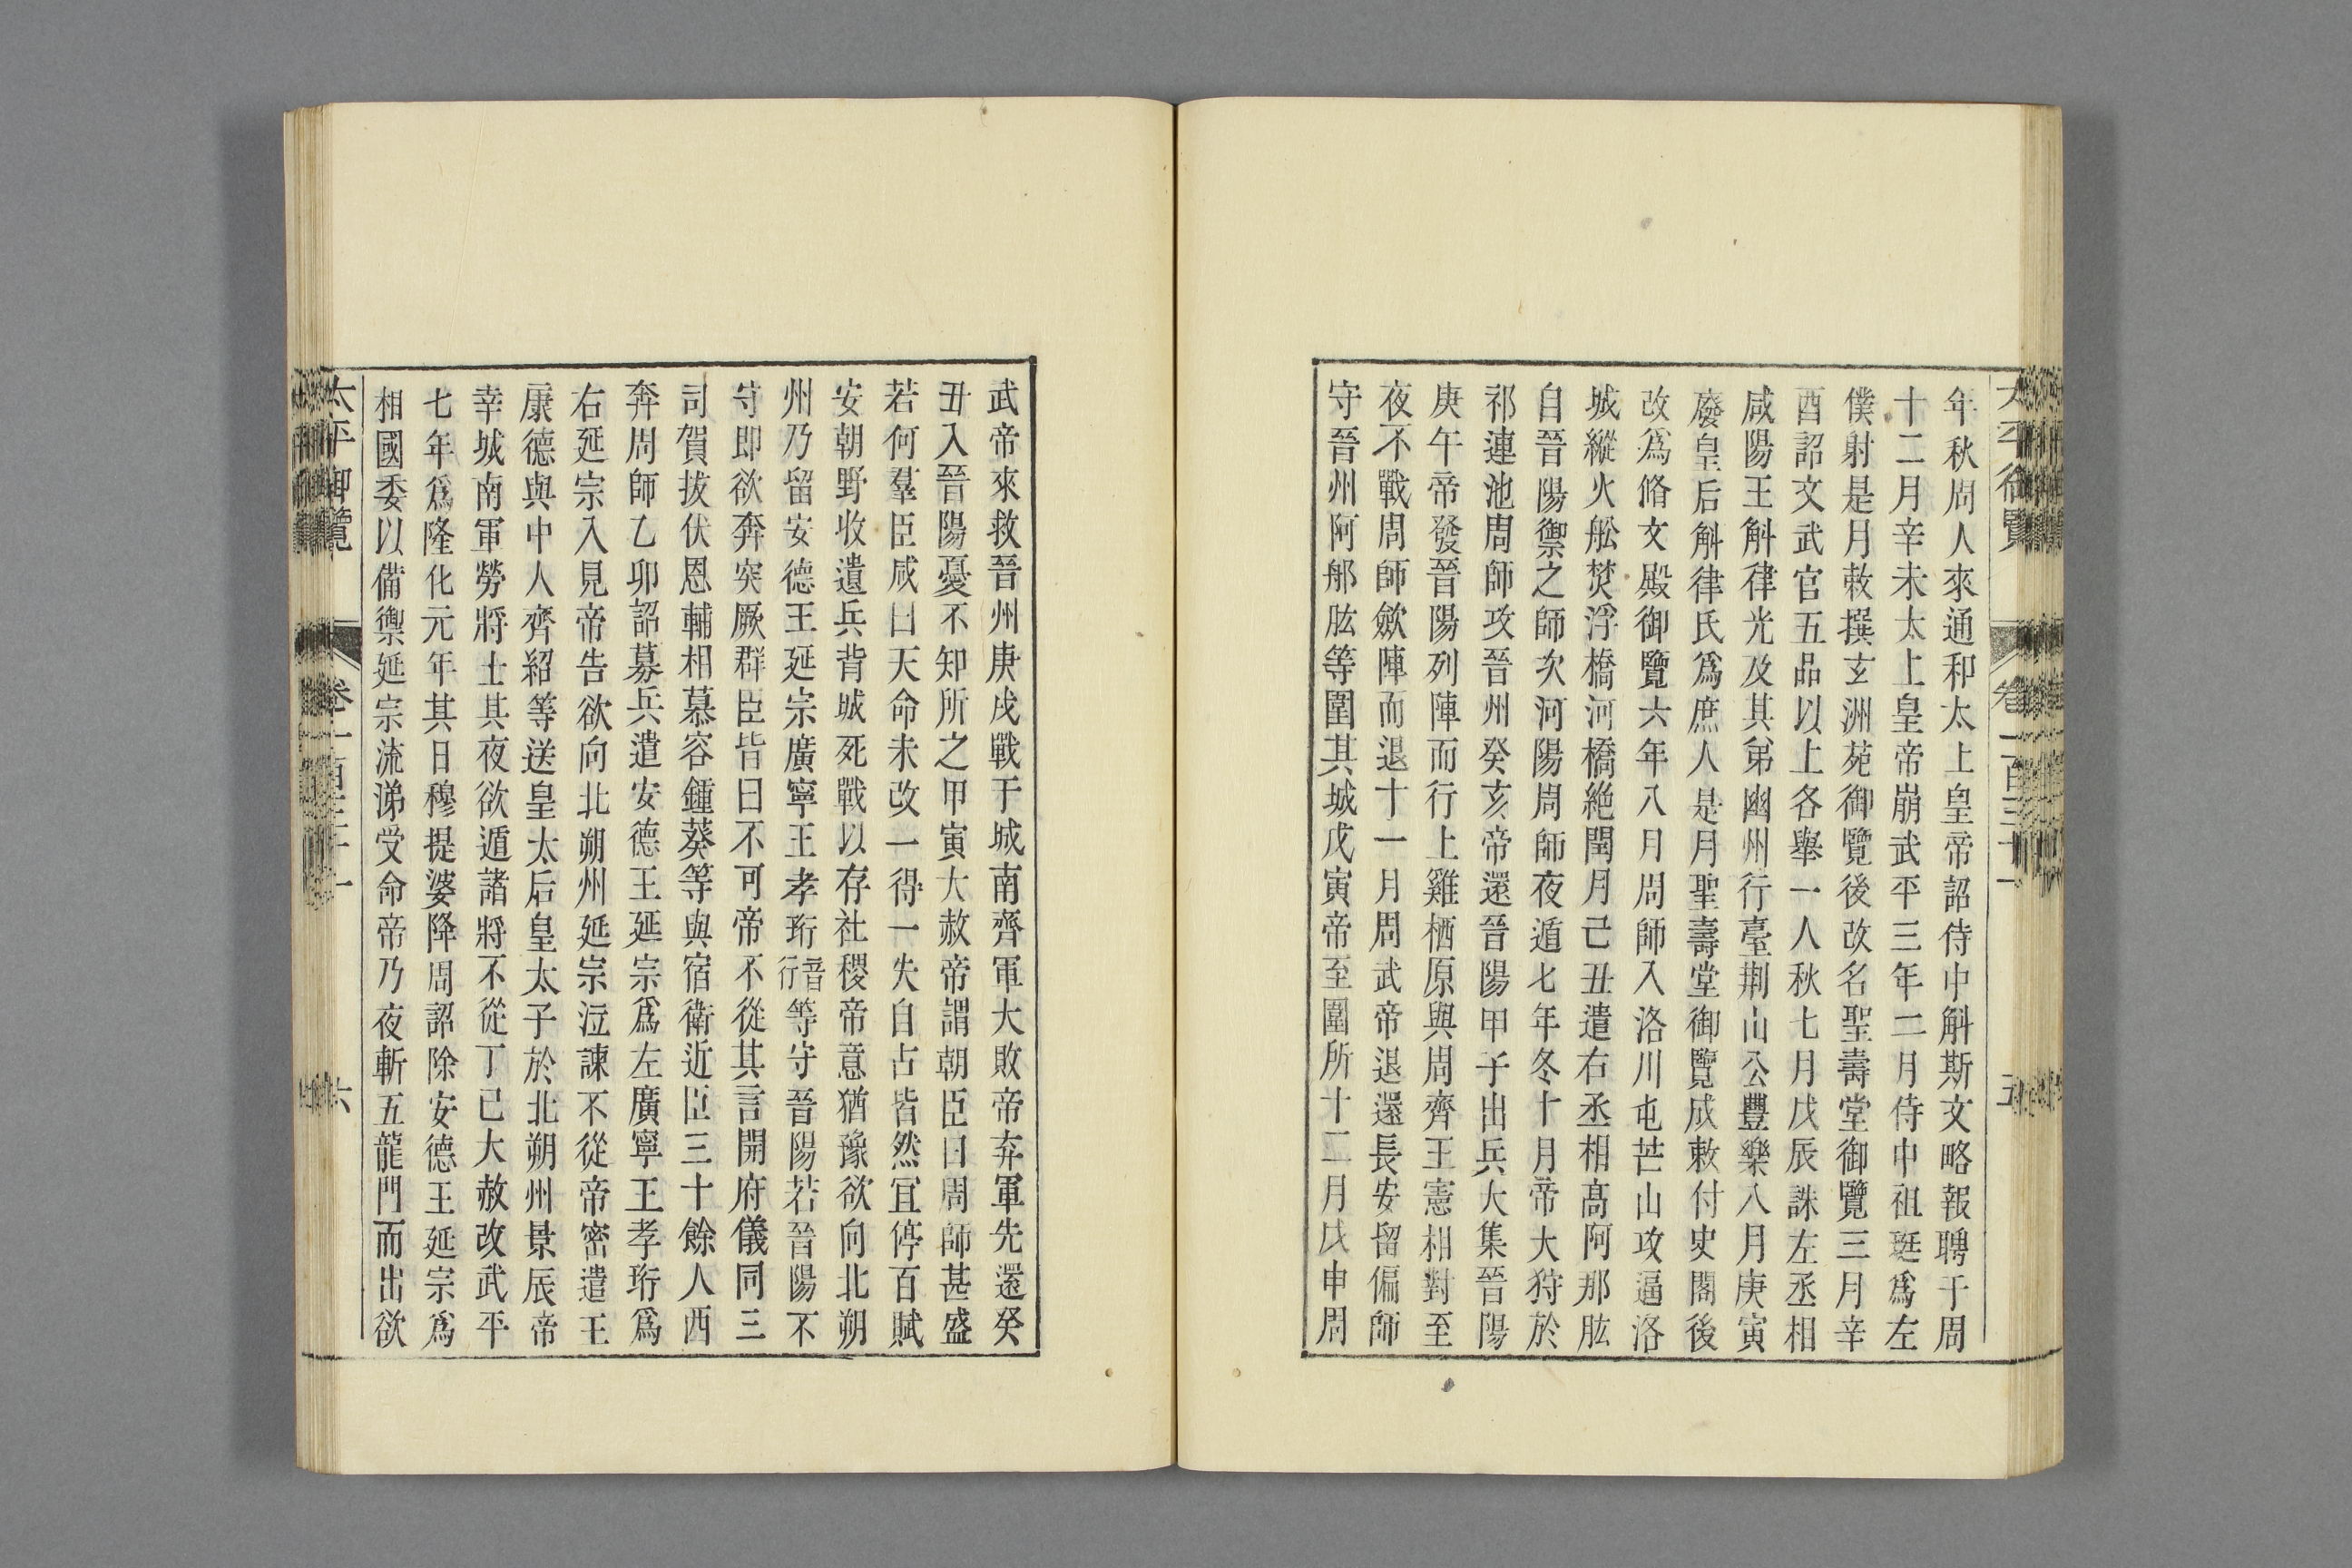 太平御覽 卷一百三十一 五
年秋周人來通和太上皇帝詔侍中斛斯文略報聘于周
十二月辛未太上皇帝崩武平三年二月侍中祖珽爲左
僕射是月敕撰玄洲苑御覽後改名聖壽堂御覽三月辛
酉詔文武官五品以上各舉一人秋七月戊辰誅左丞相
咸陽王斛律光及其弟幽州行臺荆山公豐樂八月庚寅
廢皇后斛律氏爲庶人是月聖壽堂御覽成敕付史閣後
改爲脩文殿御覽六年八月周師入洛川屯芒山攻逼洛
城縱火舩焚浮橋河橋絶閏月己丑遣右丞相髙阿那肱
自晉陽禦之師次河陽周師夜遁七年冬十月帝大狩於
祁連池周師攻晉州癸亥帝還晉陽甲子出兵大集晉陽
庚午帝發晉陽列陣而行上雞栖原與周齊王憲相對至
夜不戰周師歛陣而退十一月周武帝退還長安留偏師
守晉州阿郍肱等圍其城戊寅帝至圍所十二月戊申周
武帝來救晉州庚戌戰于城南齊軍大敗帝弃軍先還癸
丑入晉陽憂不知所之甲寅大赦帝謂朝臣曰周師甚盛
若何羣臣咸曰天命未改一得一失自占皆然宜停百賦
安朝野收遺兵背城死戰以存社稷帝意猶豫欲向北朔
州乃留安德王延宗廣寧王孝珩音行等守晉陽若晉陽不
守即欲奔突厥群臣皆曰不可帝不從其言開府儀同三
司賀拔伏恩輔相慕容鍾葵等與宿衛近臣三十餘人西
奔周師乙卯詔募兵遣安德王延宗爲左廣寧王孝珩爲
右延宗入見帝告欲向北朔州延宗泣諫不從帝密遣王
康德與中人齊紹等送皇太后皇太子於北朔州景辰帝
幸城南軍勞將士其夜欲遁諸將不從丁巳大赦改武平
七年爲隆化元年其日穆提婆降周詔除安德王延宗爲
相國委以備禦延宗流涕受命帝乃夜斬五龍門而出欲
太平御覽 卷一百三十一 六